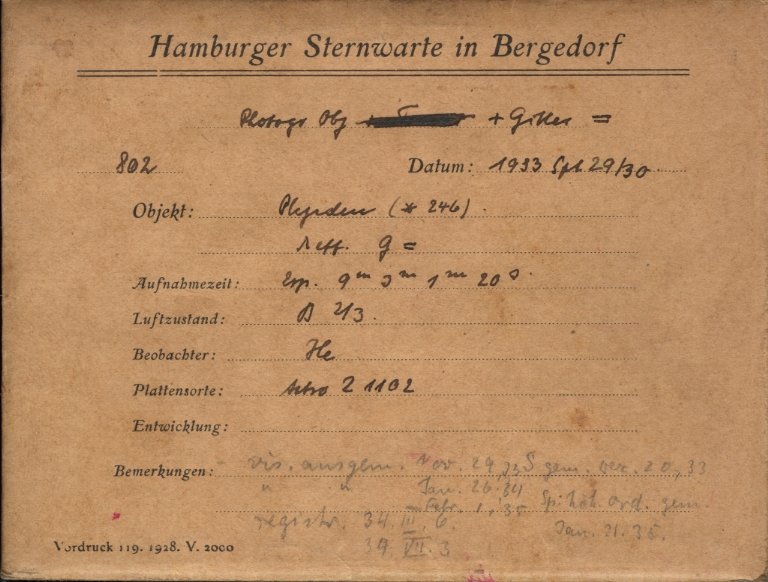 Hamburger Sternwarte in Bergedorf
Photogr Obj + Gitter =
802 Datum: 1933 Spt 29/30
Objekt: Plejaden (* 246)
g =
Aufnahmezeit: Exp. 9m 3m 1m 20s
Luftzustand: B 2/3
Beobachter: He
Plattensorte: Astro Z 1102
Entwicklung:
Bemerkungen: vis. ausgem. Nov. 29, 33 S gem. Dez. 20, 33
" " Jan. 26. 34
Febr. 1, 35 Sp. höh. Ord. gem.
registr. 34. III. 6. Jan. 21. 35.
34 VII. 3
Vordruck 119. 1928. V. 2000